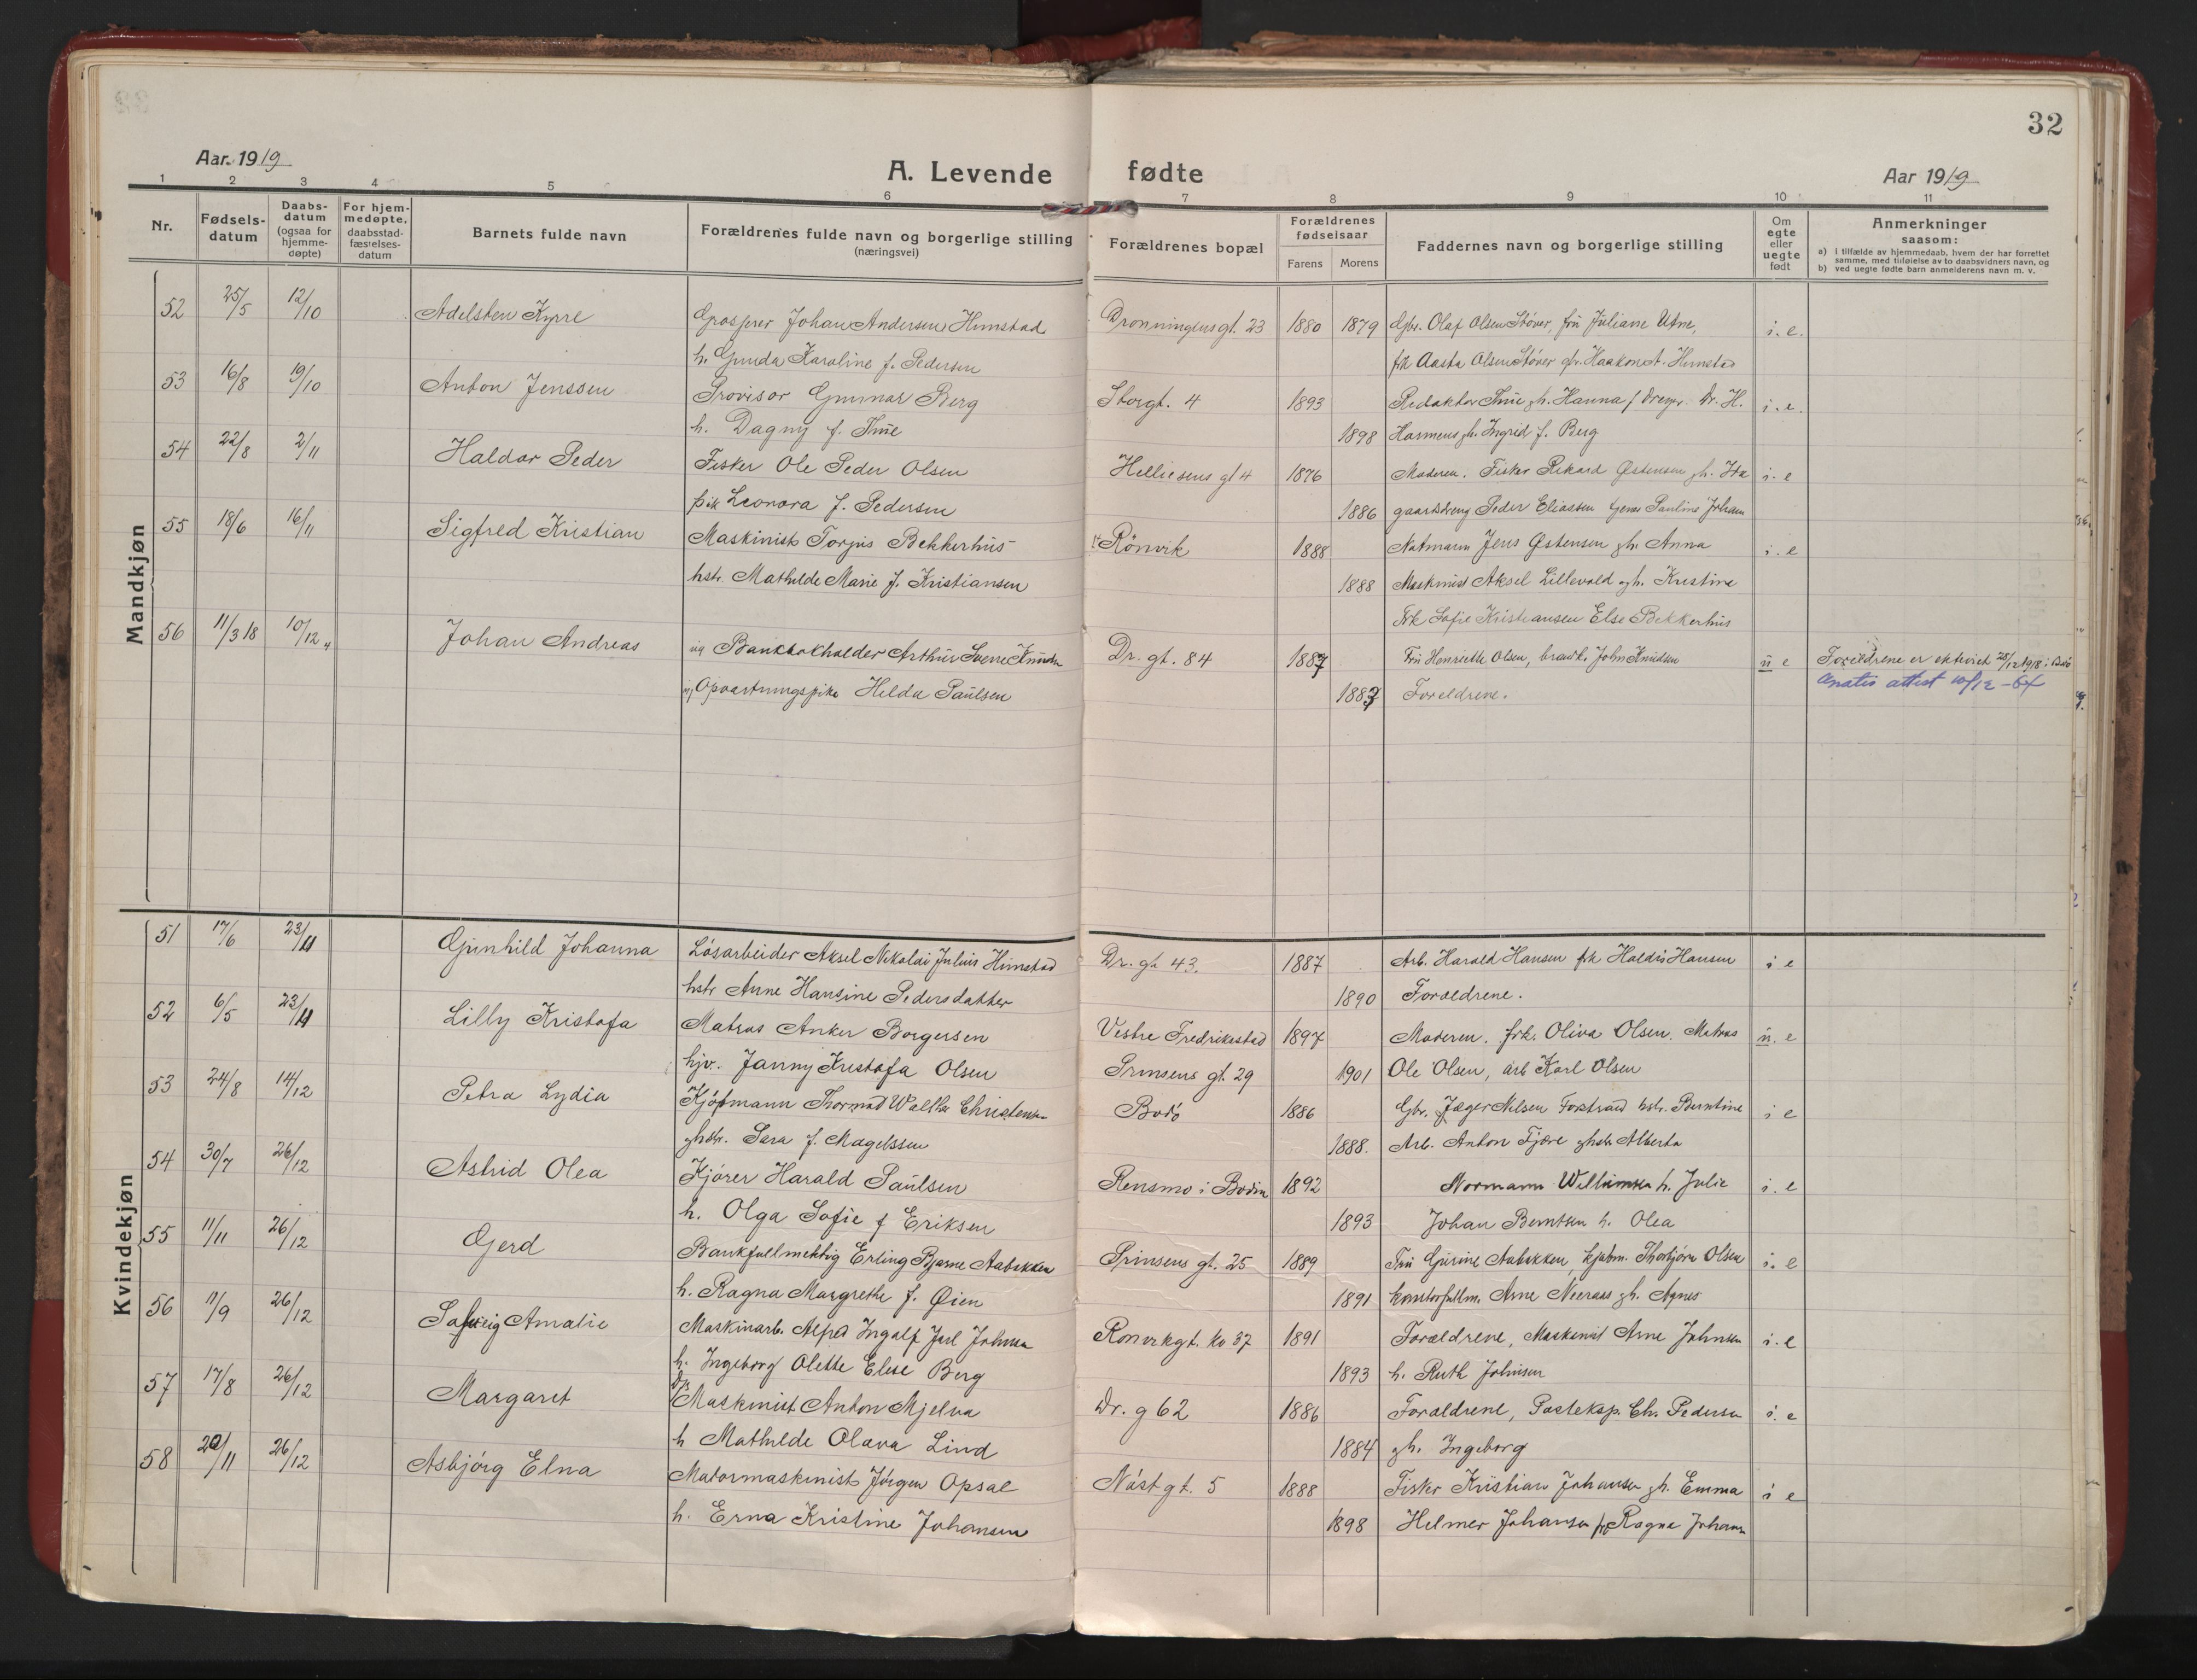 32
Aar. 1919
A. Levende fødte
Aar 1919
1 2 3 4 5 6 7 8 9 10 11
Nr.
Fødsels-
datum
Daabs-
datum
(ogsaa for
hjemme-
døpte)
For hjem-
medøpte.
daabsstad-
fæstelses-
datum
Barnets fulde navn
Forældrenes fulde navn og borgerlige stilling
(næringsvei)
Forældrenes bopæl
Forældrenes
fødselsaar
Farens Morens
Faddernes navn og borgerlige stilling
Om
egte
eller
uegte
født
Anmerkninger
saasom:
a) i tilfælde av hjemmedaab, hvem der har forrettet
samme, med tilføielse av to daabsvidners navn, og
b) ved uegte fødte barn anmelderens navn m. v.
Mandkjøn
52 25/5 12/10 Adelsten Kyrre Grosserer Johan Andersen Himstad Dronningens gt. 23 1880 1879 Gbr. Olaf Olsen Støver, fru Juliane Utne, i. e.
h. Gunda Karoline f. Pedersen frk Aasta Olsen Støver gbr. Haakon A. Himstad
53 16/8 19/10 Anton Jenssen Provisor Gunnar Berg Storgt. 4 1893 Redaktør Thue gh. Hanna f Dreyer. Dr. H. i. e.
h. Dagny f. Thue 1898 Hasmens gh. Ingrid f. Berg
54 22/8 2/11 Haldor Peder Fisker Ole Peder Olsen Helliesens gt 4 1876 Moderen. Fisker Rikard Østensen gh. Ida i. e
Leonora f. Pedersen 1886 gaardsdreng Peder Eliassen Pauline Johan
55 18/6 16/11 Sigfred Kristian Maskinist Torjus Bekkerhus Rönvik 1888 Natmann Jens Østensen gh. Anna i. e
hstr. Mathilde Marie f. Kristiansen 1888 Maskinist Aksel Lillevold gh. Kristine
Frk Sofie Kristiansen Else Bekkerhus
56 11/3 18 10/12 Johan Andreas ug Bankbokholder Arthur Sverre Knudsen Dr. gt. 84 1887 Fru Henriette Olsen, John Knudsen u e Foreldrene er ekteviet 28/12 1918 i Bodö
Opvartningspike Helda Paulsen 1887 Foreldrene. Gratis attest 10/12 - 64
Kvindekjøn
51 17/6 23/11 Gunhild Johanna Lösarbeider Aksel Nikolai Julius Himstad Dr. gt. 43. 1887 Arb. Harald Hansen frk Haldis Hansen i e
hstr Anne Hansine Pedersdatter 1890 Foreldrene.
52 6/5 23/11 Lilly Kristofa Matros Anker Borgersen Vestre Fredrikestad 1897 Moderen. frk. Oliva Olsen. Matros u. e
hjv. Janny Kristofa Olsen Prinsens gt. 29 1901 Ole Olsen, arb Karl Olsen
53 24/8 14/12 Petra Lydia Kjöpmann Thormod Walter Christensen Bodö 1886 Gbr. Jæger Nilsen hstr. Berntine i e
ghstr. Sara f. Magelssen 1888. Arb. Anton Fjære ghstr Alberta
54 30/7 26/12 Astrid Olea Kjörer Harald Paulsen Rensmo i Bodin 1892 Normann Willumsen h. Julie i. e
h. Olga Sofie f Eriksen 1893 Johan Berntsen h. Olea
55 11/11 26/12 Gerd Bankfullmektig Erling Bjarne Aabakken Prinsens gt. 25 1889 Fru Gurine Aabakken, kjøbm. Thorbjörn Olsen i. e
h. Ragna Margrethe f. Øien 1891 kontorfullm. Arne Neeraas gh. Agnes
56 11/9 26/12 Solveig Amalie Maskinarb. Alfred Ingolf Jarl Johnsen Rönvikgt. 37 1891 Foreldrene, Maskinist Arne Johnsen i. e
h. Ingeborg Olette Elise Berg 1893 h. Ruth Johnsen
57 17/8 26/12 Margaret Maskinist Anton Mjelva Dr. g 62 1886 Foreldrene, Posteksp. Chr. Pedersen i. e
h Mathilde Olava Lind 1884 gh. Ingeborg
58 20/11 26/12 Asbjörg Elna Motormaskinist Jörgen Opsal Nöst gt. 5 1888 Fisker Kristian Johansen gh. Emma i e
h. Erna Kristine Johansen 1898 Helmer Johansen Ragna Johansen